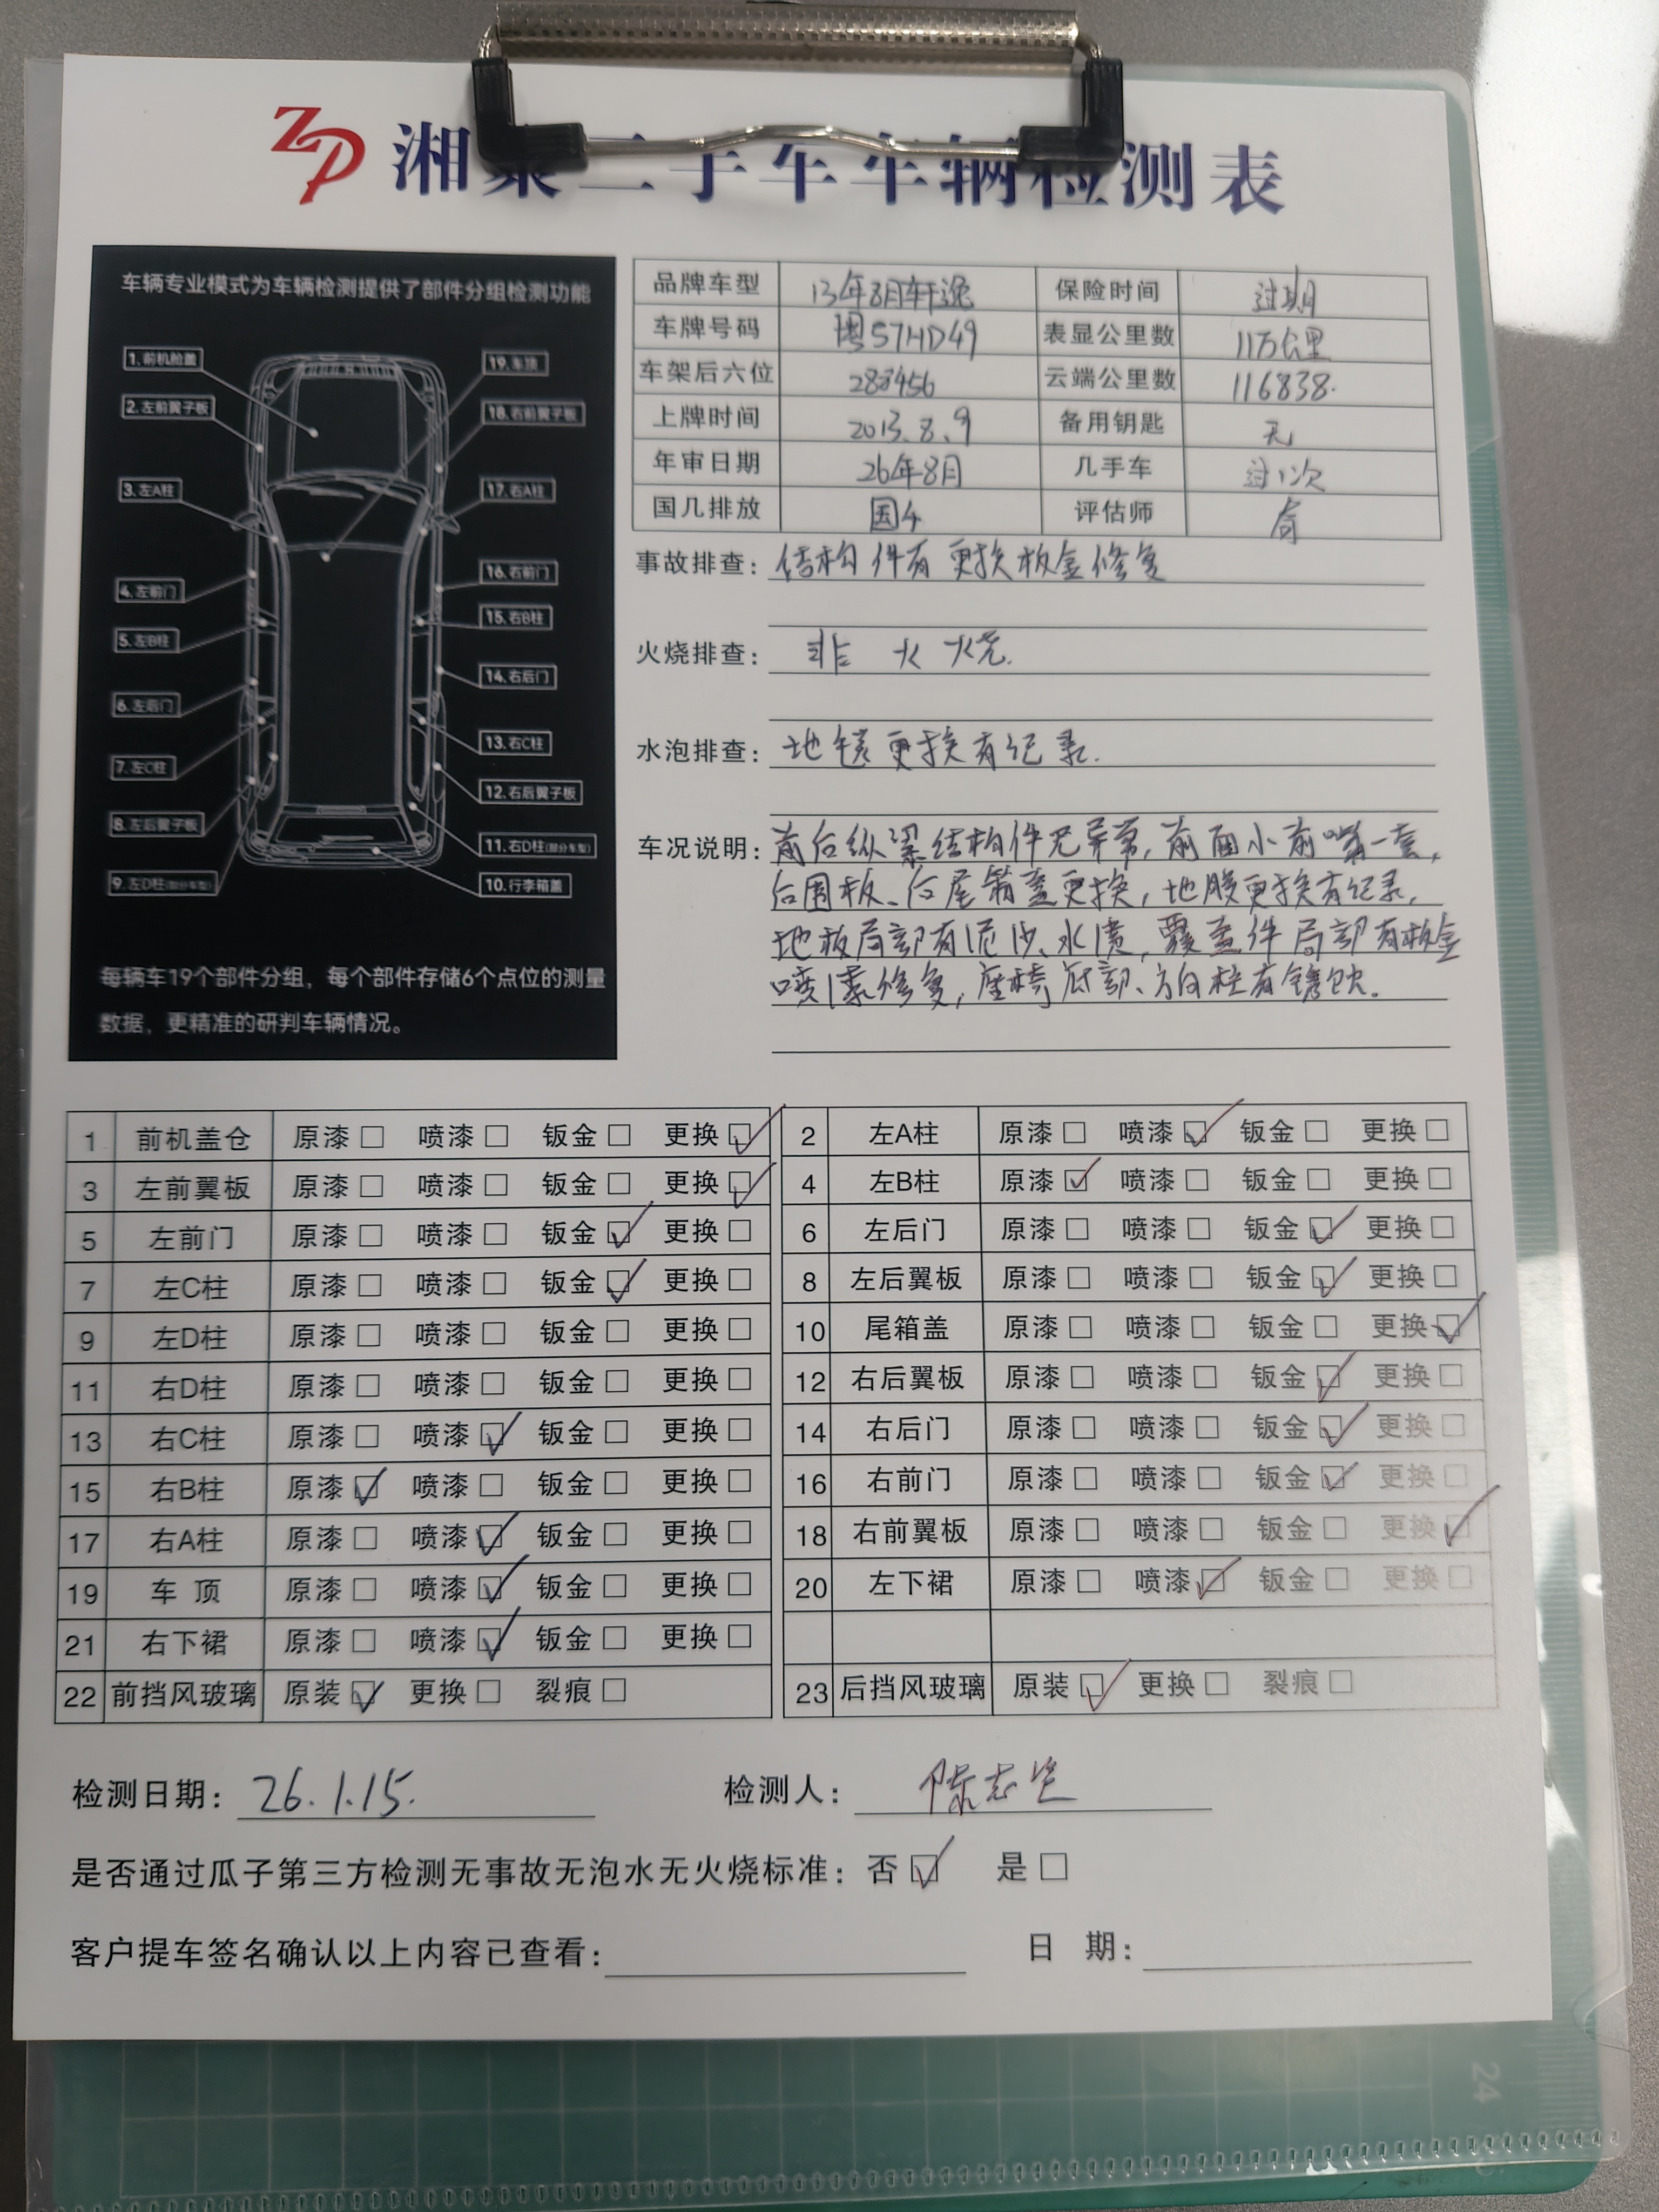 ZP 湘聚二手车车辆检测表
车辆专业模式为车辆检测提供了部件分组检测功能
1.前机舱盖
19.车顶
2.左前翼子板
18.右前翼子板
3.左A柱
17.右A柱
4.左前门
16.右前门
5.左B柱
15.右B柱
6.左后门
14.右后门
7.左C柱
13.右C柱
8.左后翼子板
12.右后翼子板
9.左D柱(部分车型)
11.右D柱(部分车型)
10.行李箱盖
每辆车19个部件分组，每个部件存储6个点位的测量
数据，更精准的研判车辆情况。
品牌车型 13年8月轩逸 保险时间 过期
车牌号码 粤S7HD49 表显公里数 11万公里
车架后六位 283456 云端公里数 116838.
上牌时间 2013.8.9 备用钥匙 无
年审日期 26年8月 几手车 过1次
国几排放 国4 评估师
事故排查：结构件有更换板金修复
火烧排查：非火烧.
水泡排查：地毯更换有记录.
车况说明：前后纵梁结构件无异常,前面小前嘴一套,
后围板、后尾箱盖更换,地胶更换有纪录,
地板局部有泥沙、水渍,覆盖件局部有板金
喷漆修复,座椅底部、方向柱有锈蚀.
1 前机盖仓 原漆□ 喷漆□ 钣金□ 更换☑ 2 左A柱 原漆□ 喷漆☑ 钣金□ 更换□
3 左前翼板 原漆□ 喷漆□ 钣金□ 更换☑ 4 左B柱 原漆☑ 喷漆□ 钣金□ 更换□
5 左前门 原漆□ 喷漆□ 钣金☑ 更换□ 6 左后门 原漆□ 喷漆□ 钣金☑ 更换□
7 左C柱 原漆□ 喷漆□ 钣金☑ 更换□ 8 左后翼板 原漆□ 喷漆□ 钣金☑ 更换□
9 左D柱 原漆□ 喷漆□ 钣金□ 更换□ 10 尾箱盖 原漆□ 喷漆□ 钣金□ 更换☑
11 右D柱 原漆□ 喷漆□ 钣金□ 更换□ 12 右后翼板 原漆□ 喷漆□ 钣金☑ 更换□
13 右C柱 原漆□ 喷漆☑ 钣金□ 更换□ 14 右后门 原漆□ 喷漆□ 钣金☑ 更换□
15 右B柱 原漆☑ 喷漆□ 钣金□ 更换□ 16 右前门 原漆□ 喷漆□ 钣金☑ 更换□
17 右A柱 原漆□ 喷漆☑ 钣金□ 更换□ 18 右前翼板 原漆□ 喷漆□ 钣金□ 更换☑
19 车 顶 原漆□ 喷漆☑ 钣金□ 更换□ 20 左下裙 原漆□ 喷漆☑ 钣金□ 更换□
21 右下裙 原漆□ 喷漆☑ 钣金□ 更换□
22 前挡风玻璃 原装☑ 更换□ 裂痕□ 23 后挡风玻璃 原装☑ 更换□ 裂痕□
检测日期：26.1.15. 检测人：陈志
是否通过瓜子第三方检测无事故无泡水无火烧标准：否☑ 是□
客户提车签名确认以上内容已查看： 日 期：
24